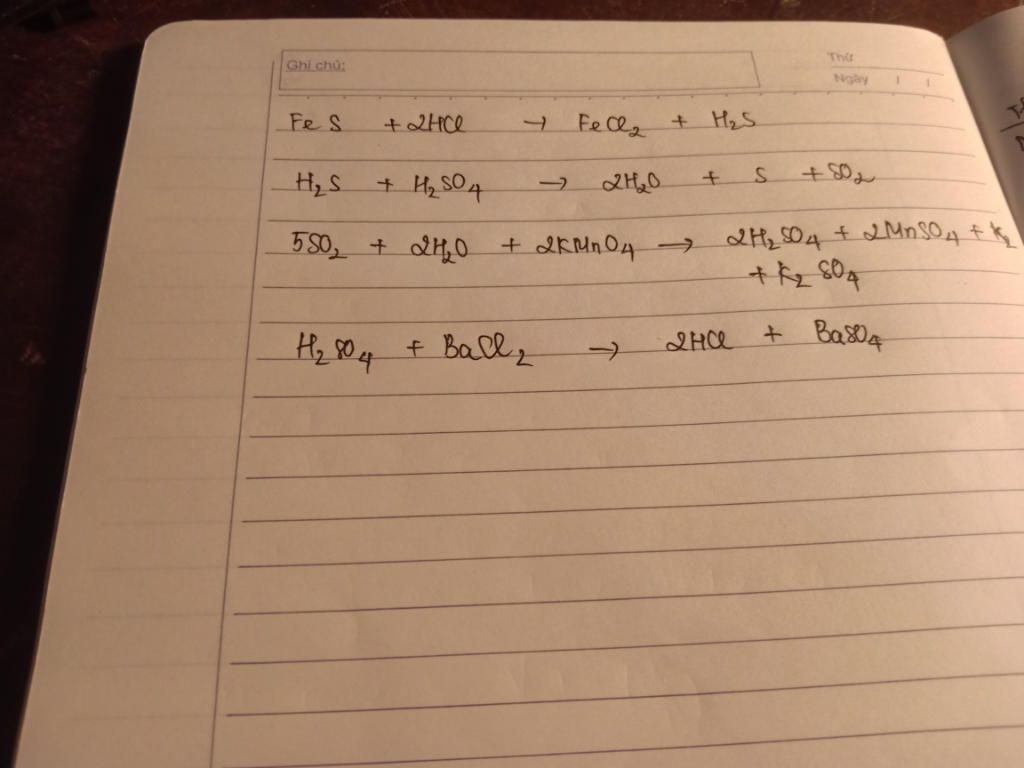 Ghi chú:
Thứ
Ngày / /
FeS + 2HCl → FeCl₂ + H₂S
H₂S + H₂SO₄ → 2H₂O + S + SO₂
5SO₂ + 2H₂O + 2KMnO₄ → 2H₂SO₄ + 2MnSO₄ + K₂
+ K₂SO₄
H₂SO₄ + BaCl₂ → 2HCl + BaSO₄